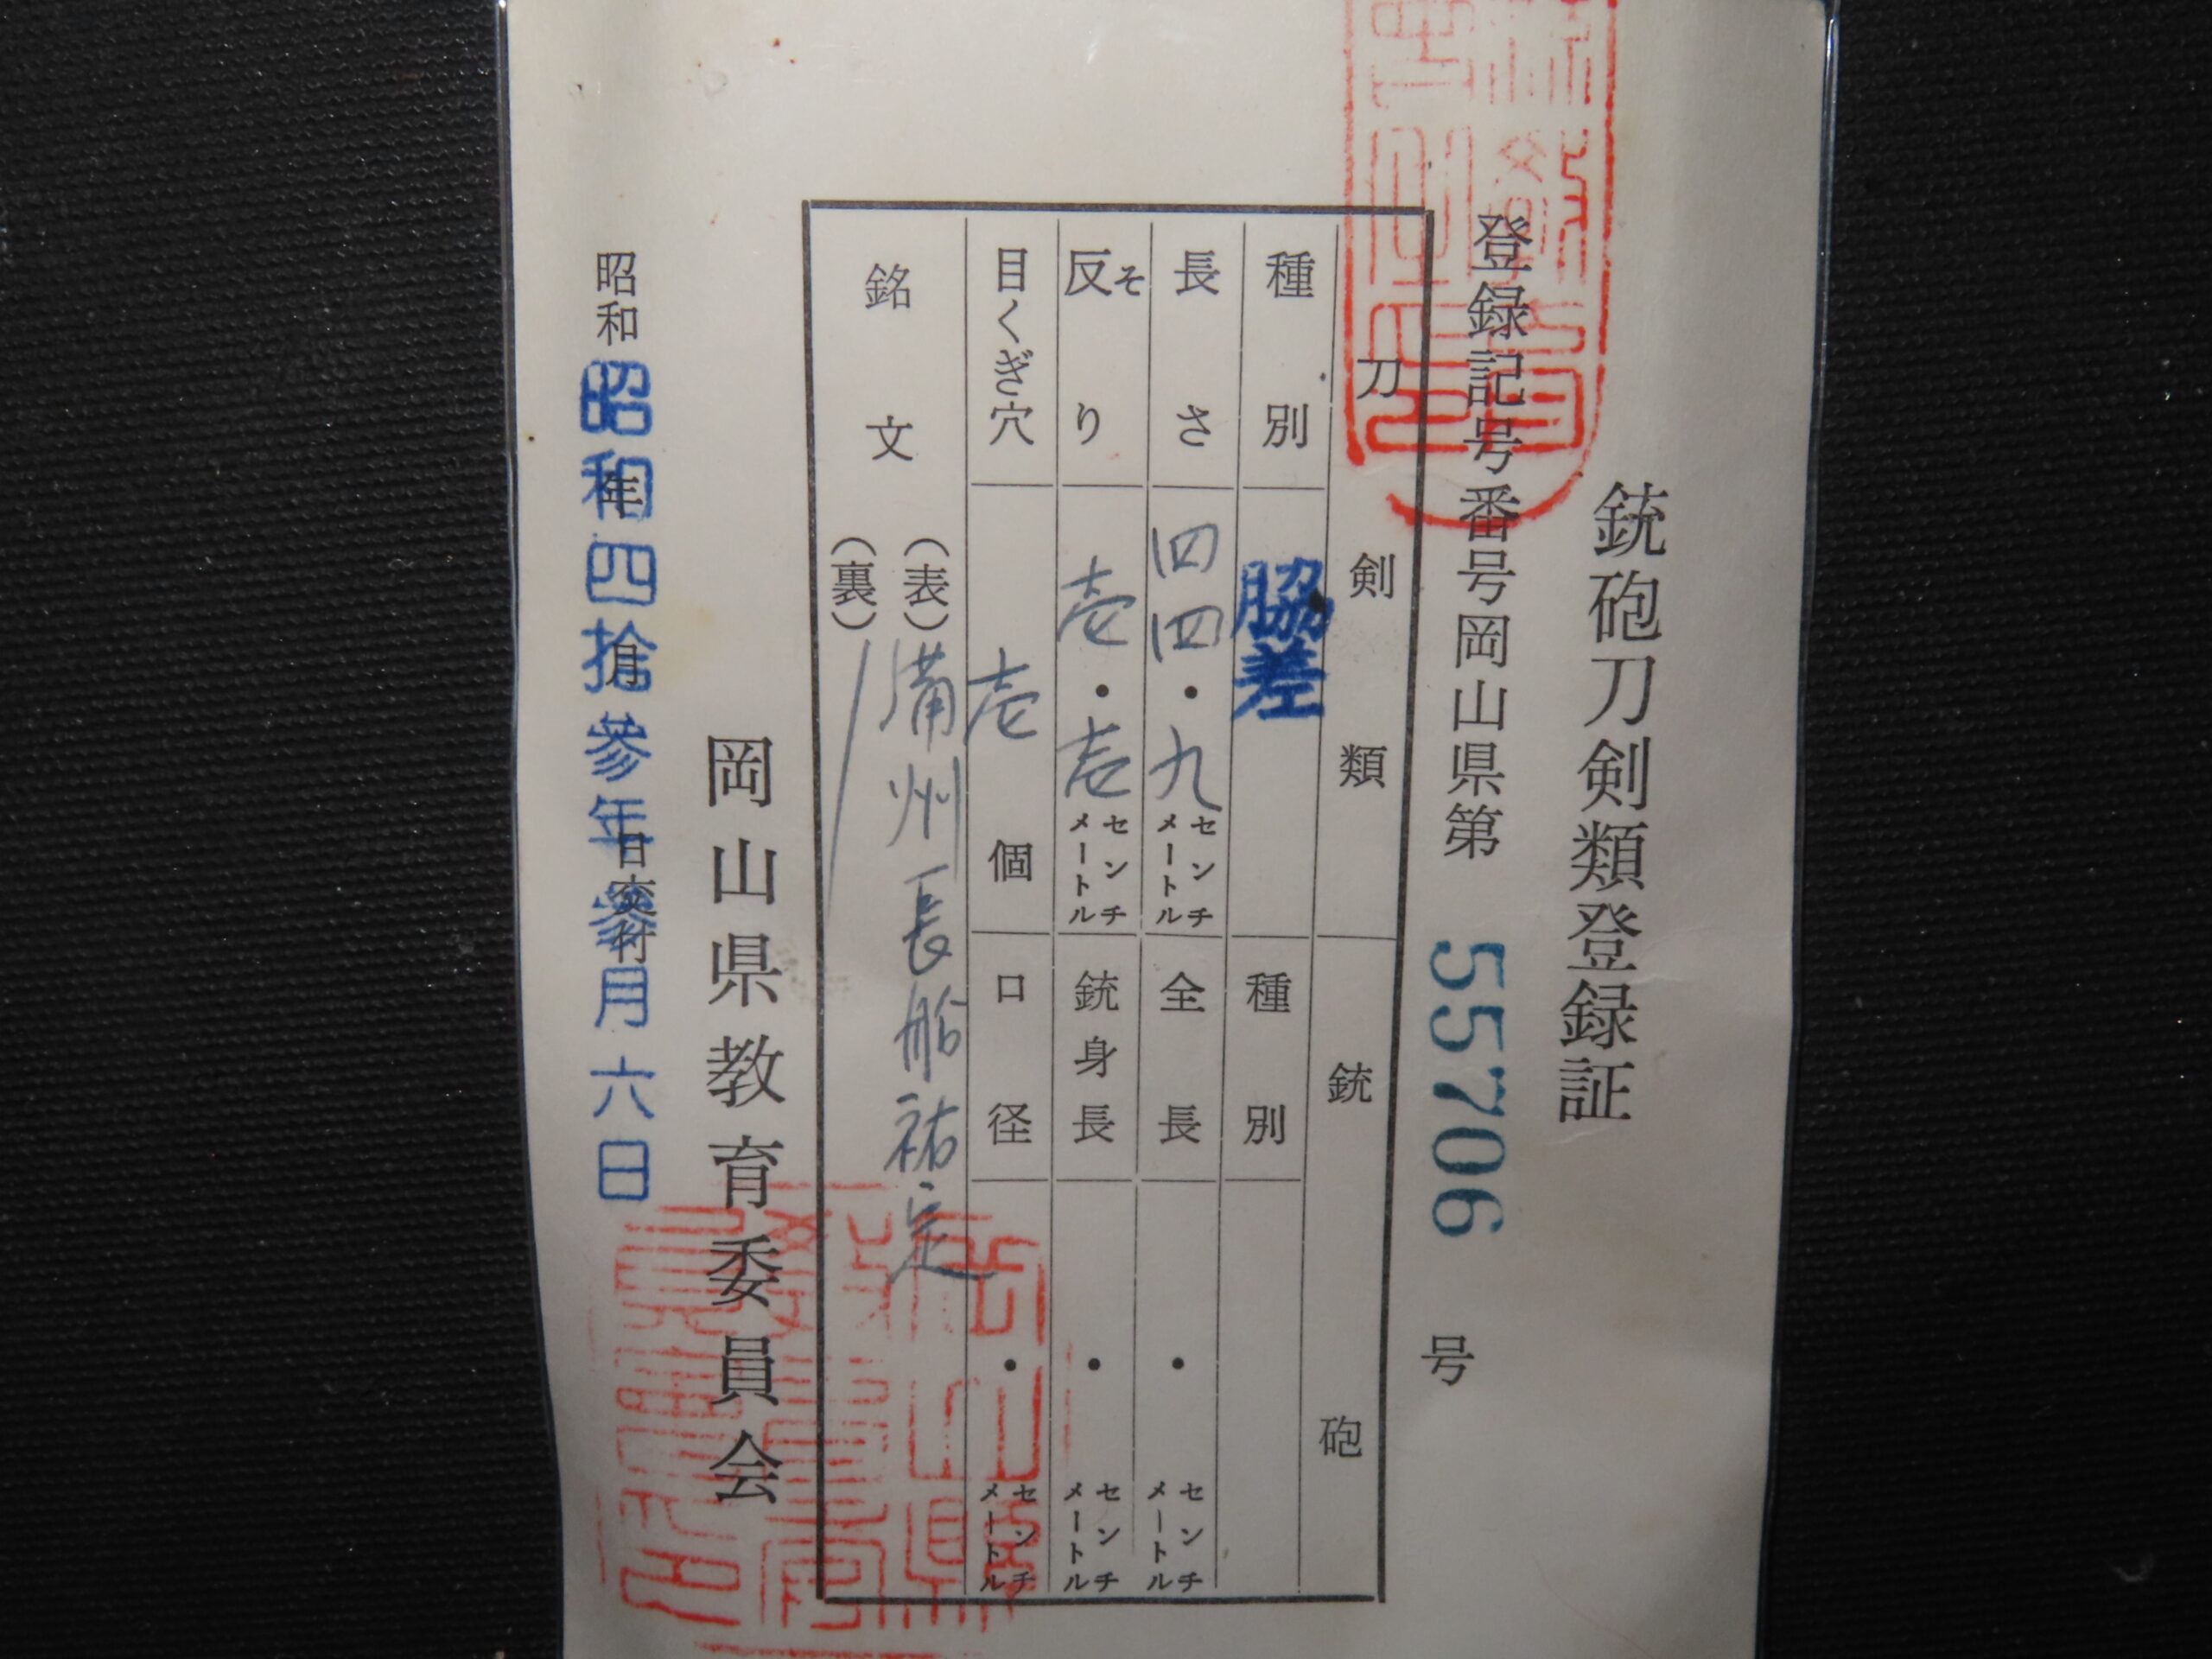 銃砲刀剣類登録証
登録記号番号岡山県第 55706 号
刀剣類 銃砲
種別 脇差 種別
長さ 四四・九 センチメートル 全長 ・ センチメートル
反り そ 壱・壱 センチメートル 銃身長 ・ センチメートル
目くぎ穴 壱 個 口径 ・ センチメートル
銘文 (表) 備州長船祐定
(裏)
岡山県教育委員会
昭和 年 月 日交付
昭和四拾参年参月六日